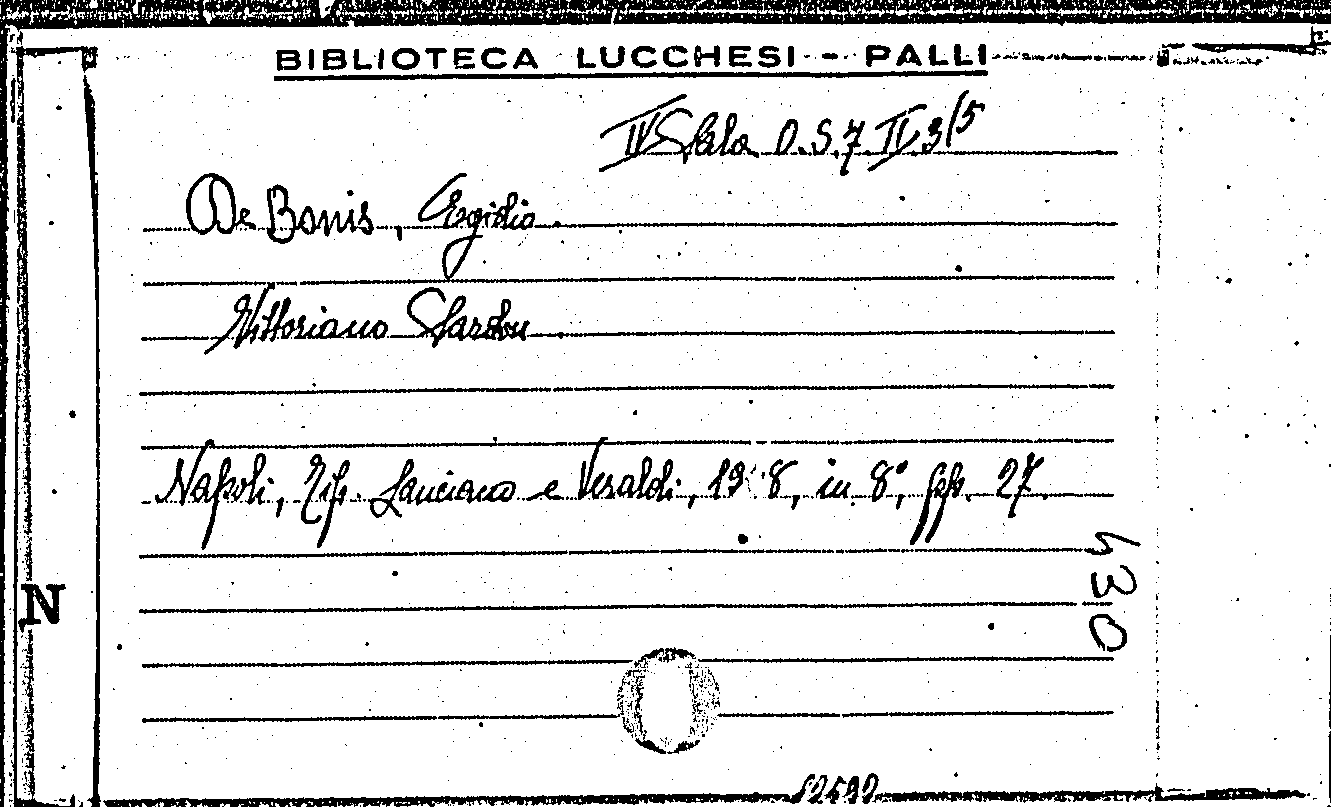 BIBLIOTECA LUCCHESI - PALLI
IV Sala O.S.7.IV.3/5
De Bonis, Egidio.
Vittoriano Sardou.
Napoli, Tip. Lanciano e Veraldi, 19 8, in 8°, pp. 27.
430
N